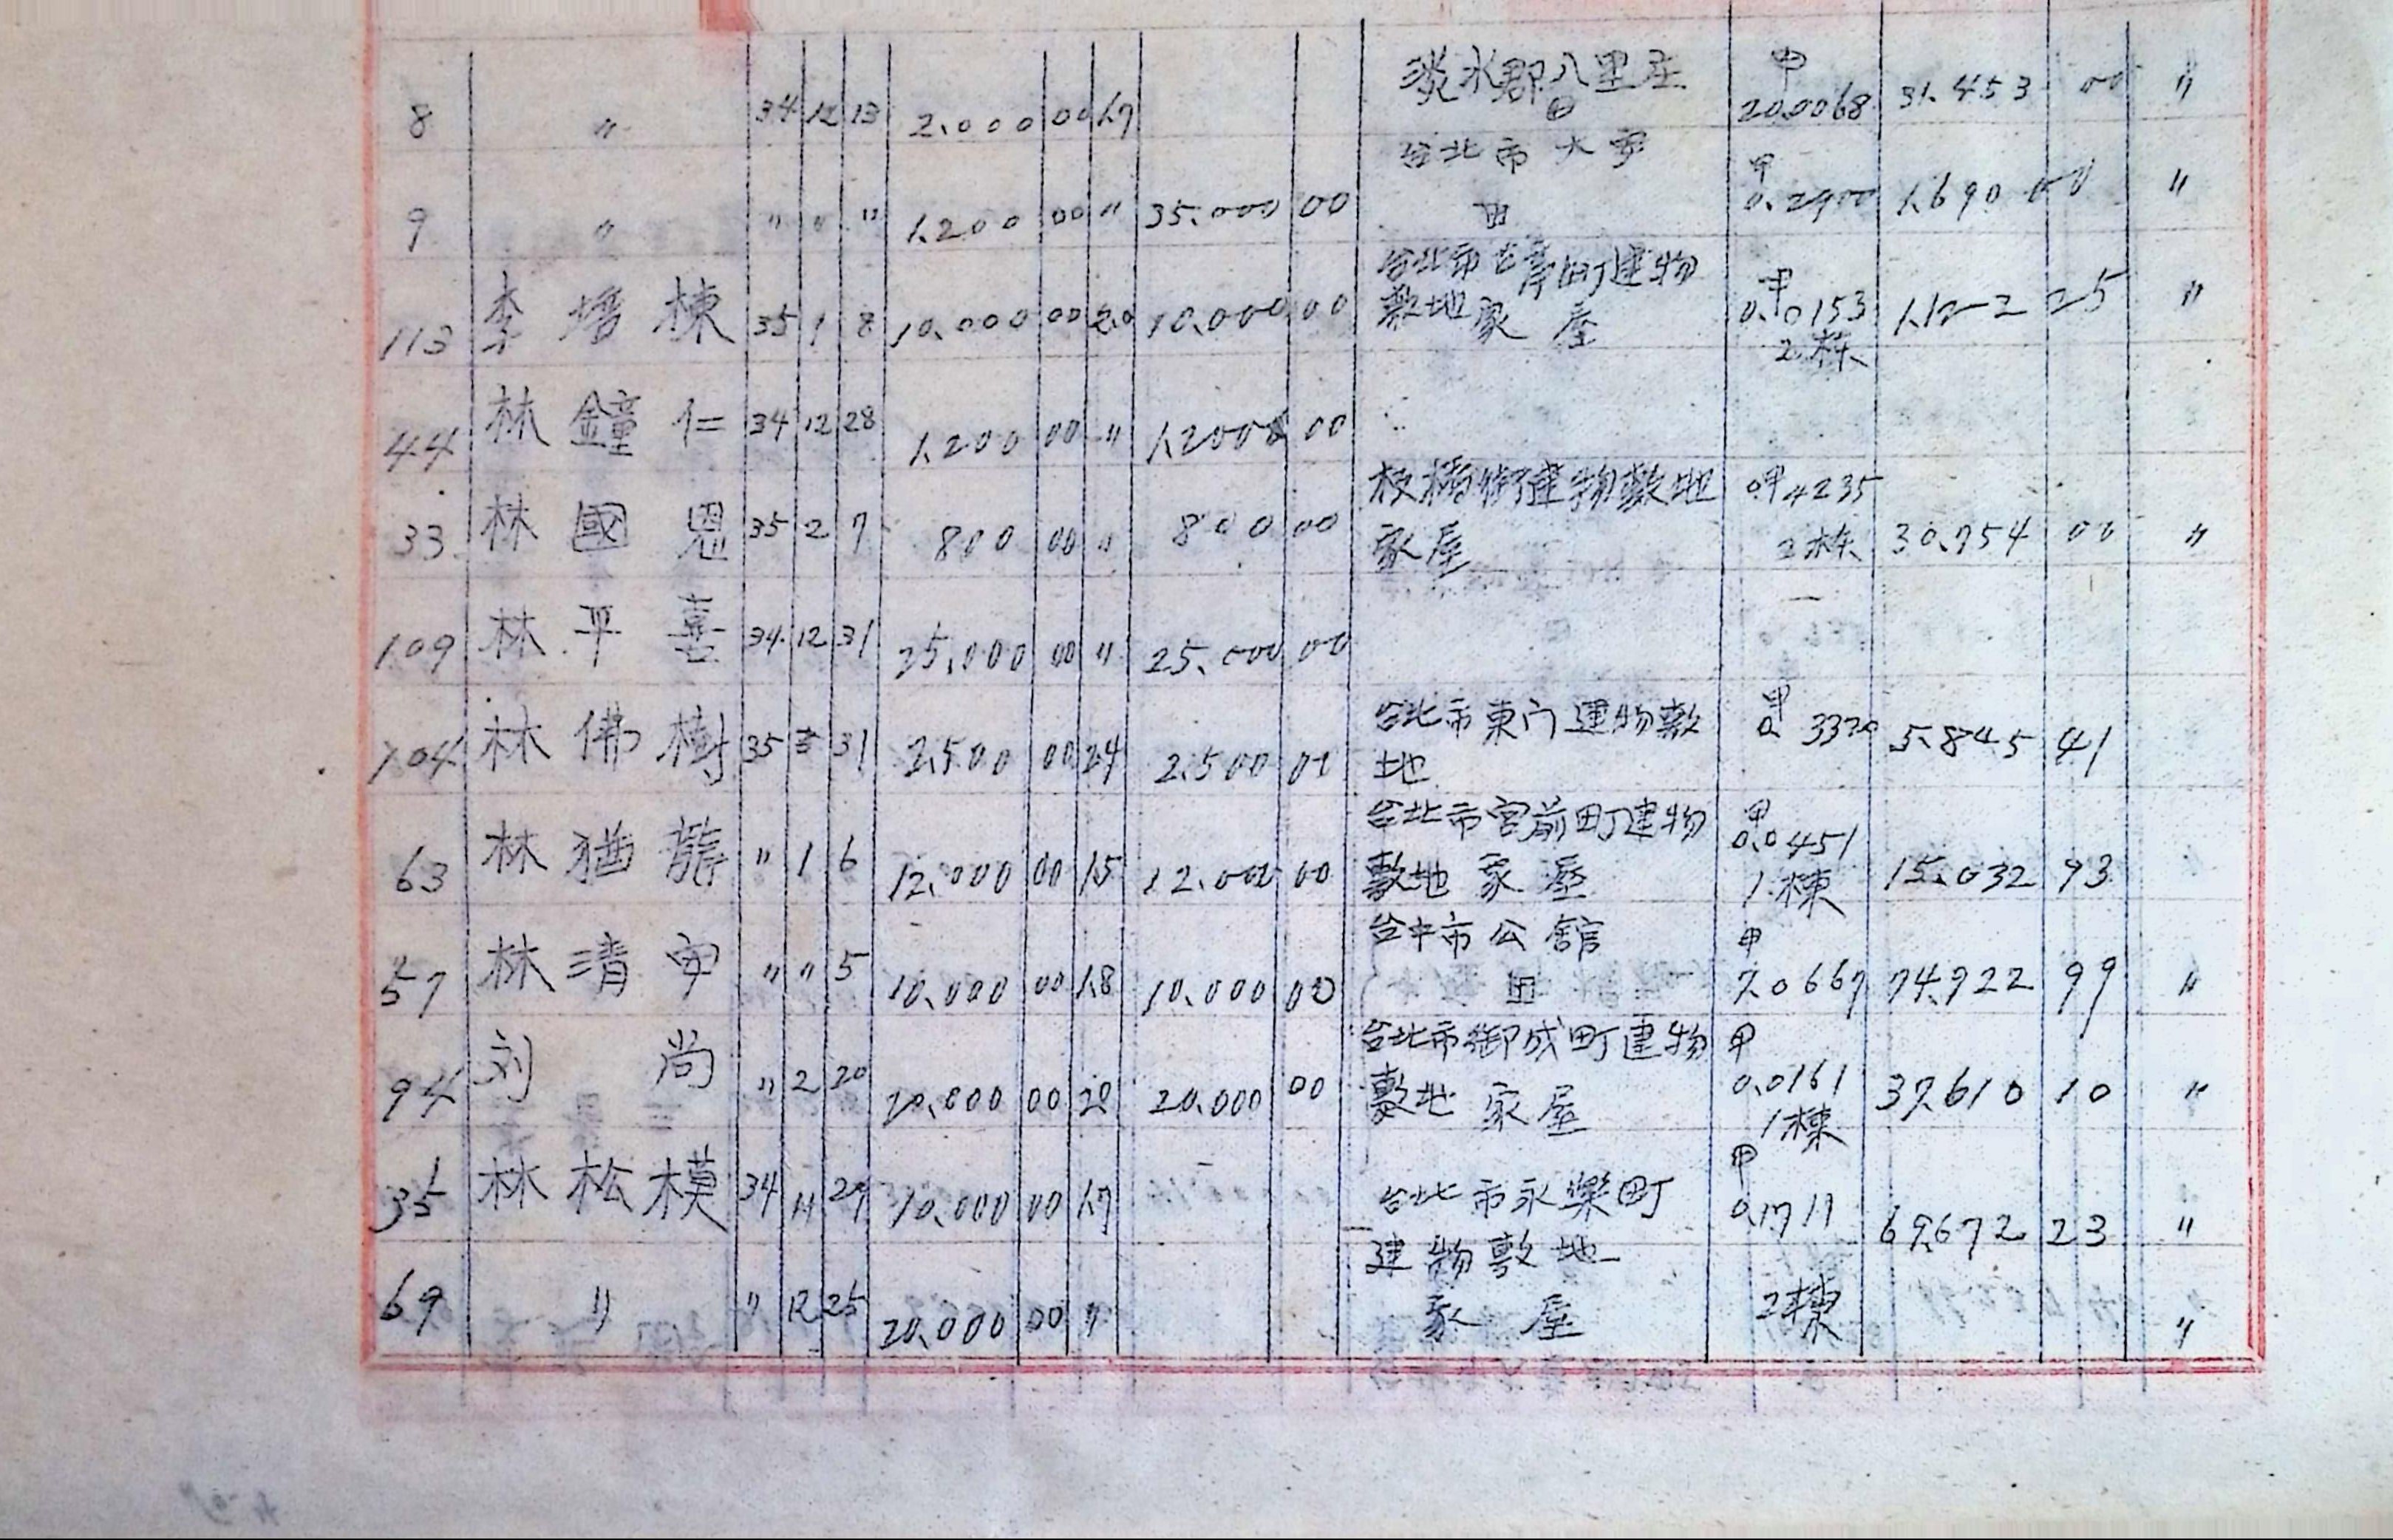 8 〃 34 12 13 2,000 00 1.7 淡水郡八里庄 田 甲 20.0068 31,453 00 〃
9 〃 〃 〃 〃 1,200 00 〃 35,000 00 台北市大字 田 甲 0.2900 1,690 00 〃
113 李培棟 35 1 8 10,000 00 2.0 10,000 00 台北市 町建物
敷地家屋 甲 0.0153 2栋 25 〃
44 林鐘仁 34 12 28 1,200 00 〃 00
33 林國恩 35 2 7 800 00 〃 800 00 板橋街建物敷地 0甲4235
家屋 2栋 30,754 00 〃
109 林平喜 34 12 31 25,000 00 〃 25,000 00
104 林佛樹 35 31 2,500 00 24 2,500 00 台北市東门建物敷 甲 0.3320 5,845 41
地
63 林猶龍 〃 1 6 12,000 00 1.5 12,000 00 台北市宮前町建物 甲 0.0451
敷地家屋 1棟 15,032 93
57 林清 〃 〃 5 10,000 00 1.8 10,000 00 台中市公館 甲
田 7.0667 74,722 99 〃
94 刘尚 〃 2 20 20,000 00 20 20,000 00 台北市御成町建物 甲
敷地家屋 0.0161 1棟 37,610 10 〃
35 林松模 34 11 27 10,000 00 1.7 台北市永樂町 甲 0.1711 69,672 23 〃
建物敷地
69 〃 〃 12 25 20,000 00 〃 家屋 2棟 〃